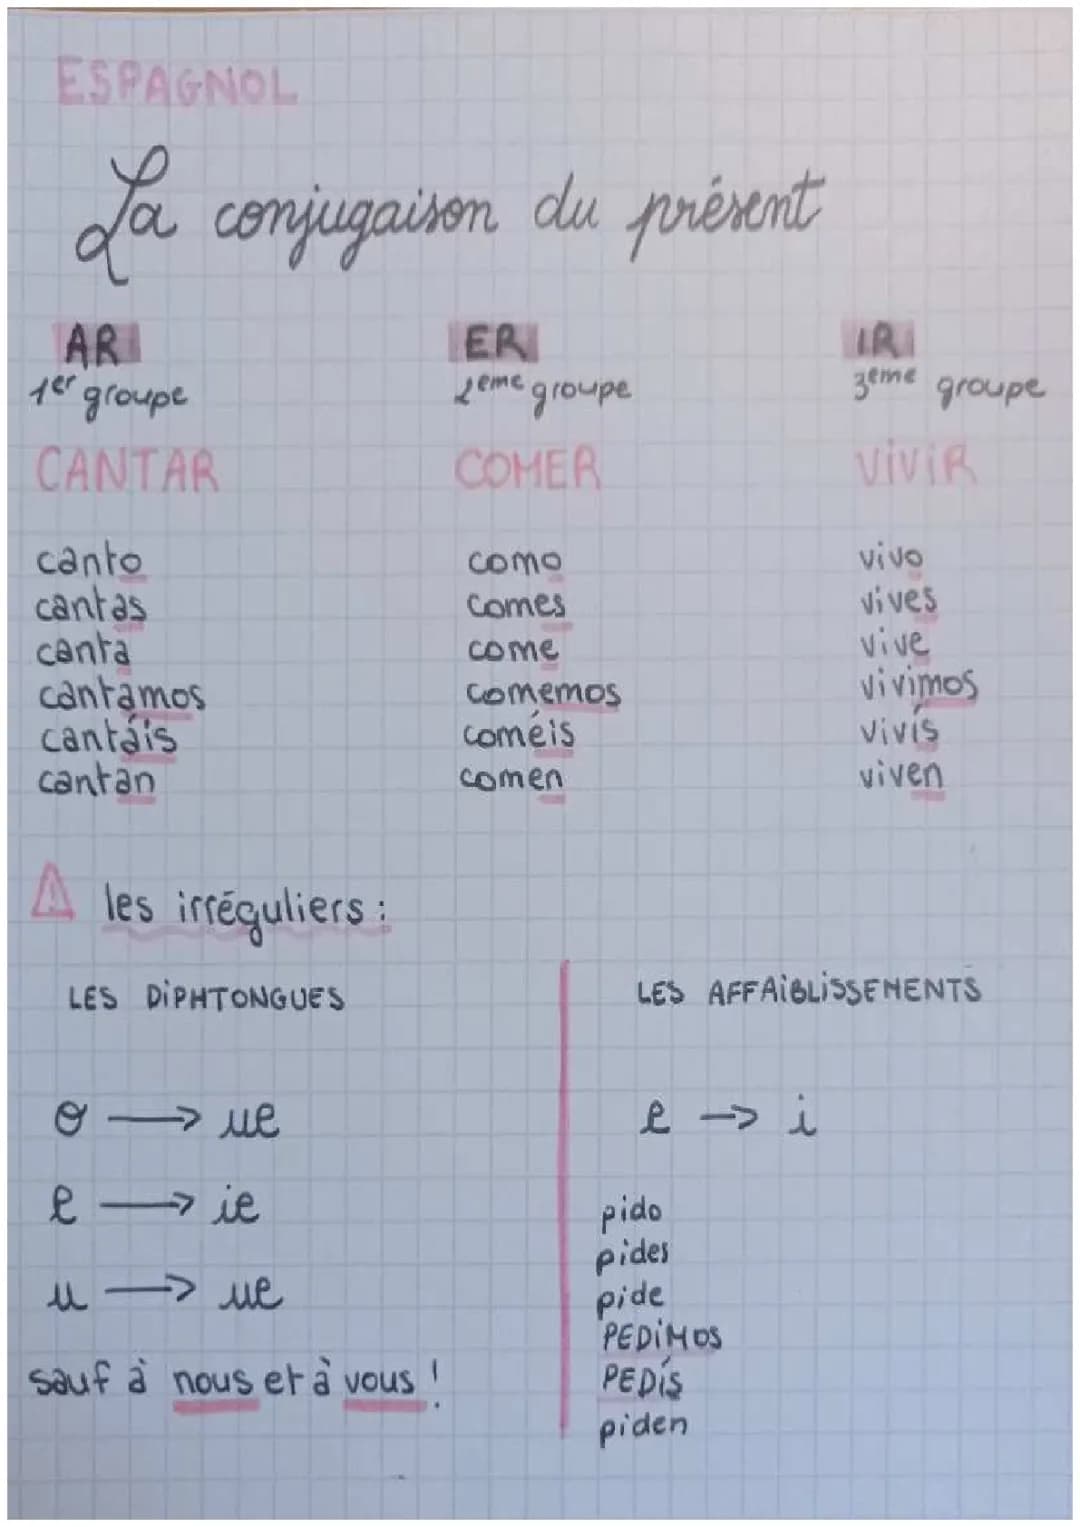 ESPAGNOL
La conjugaison du présent
AR ER IR
1er groupe 2eme groupe 3eme groupe
CANTAR COMER ViViR
canto como vivo
cantas comes vives
canta come vive
cantamos comemos vivimos
cantáis coméis vivís
cantan comen viven
⚠ les irréguliers :
LES DiPHTONGUES
o → ue
e → ie
u → ue
sauf à nous et à vous !
LES AFFAiBLiSSEMENTS
e → i
pido
pides
pide
PEDiMOS
PEDíS
piden